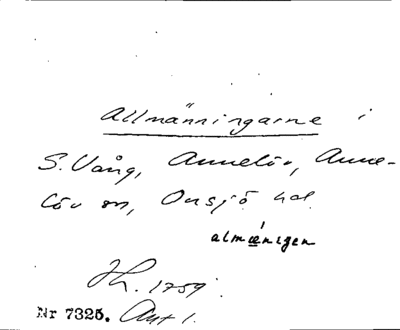 Allmänningarne i
S. Vång, Annelöv, Anne-
löv sn, Onsjö hd.
almænigen
Jh. 1759.
Nr 7325. Akt 1.